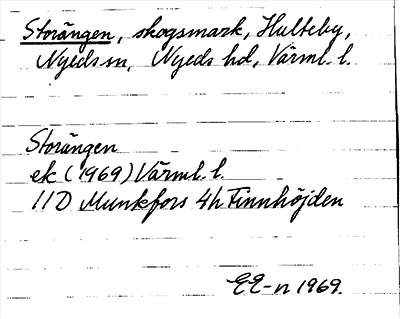 Storängen, skogsmark, Hulteby,
Nyeds sn, Nyeds hd, Värml. l.
Storängen
ek (1969) Värml. l.
11D Munkfors 4h Finnhöjden
EE-n 1969.